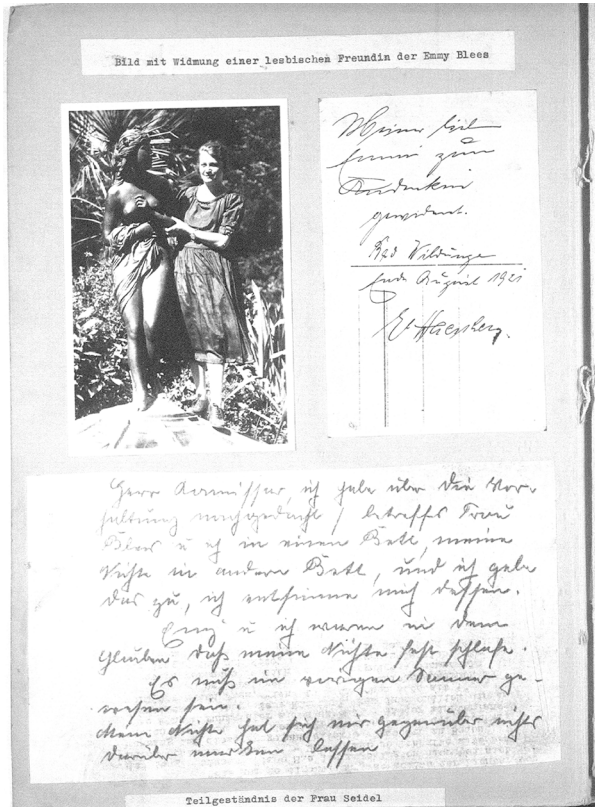 Bild mit Widmung einer lesbischen Freundin der Emmy Blees
Meiner lieb
Emmi zum
Andenken
gewidmet.
Bad Wildungen
Ende August 1921
Herr Kommissar, ich habe über die Vor-
haltung nachgedacht / betreffs Frau
Blees u ich in einem Bett, meine
Nichte in andern Bett, und ich gebe
das zu, ich entsinne mich dessen.
Emy u ich waren in dem
Glauben daß meine Nichte fest schlafe.
Es muß im vorigen Sommer ge-
wesen sein.
Mein Nichte hat sich mir gegenüber nichts
darüber merken lassen
Teilgeständnis der Frau Seidel